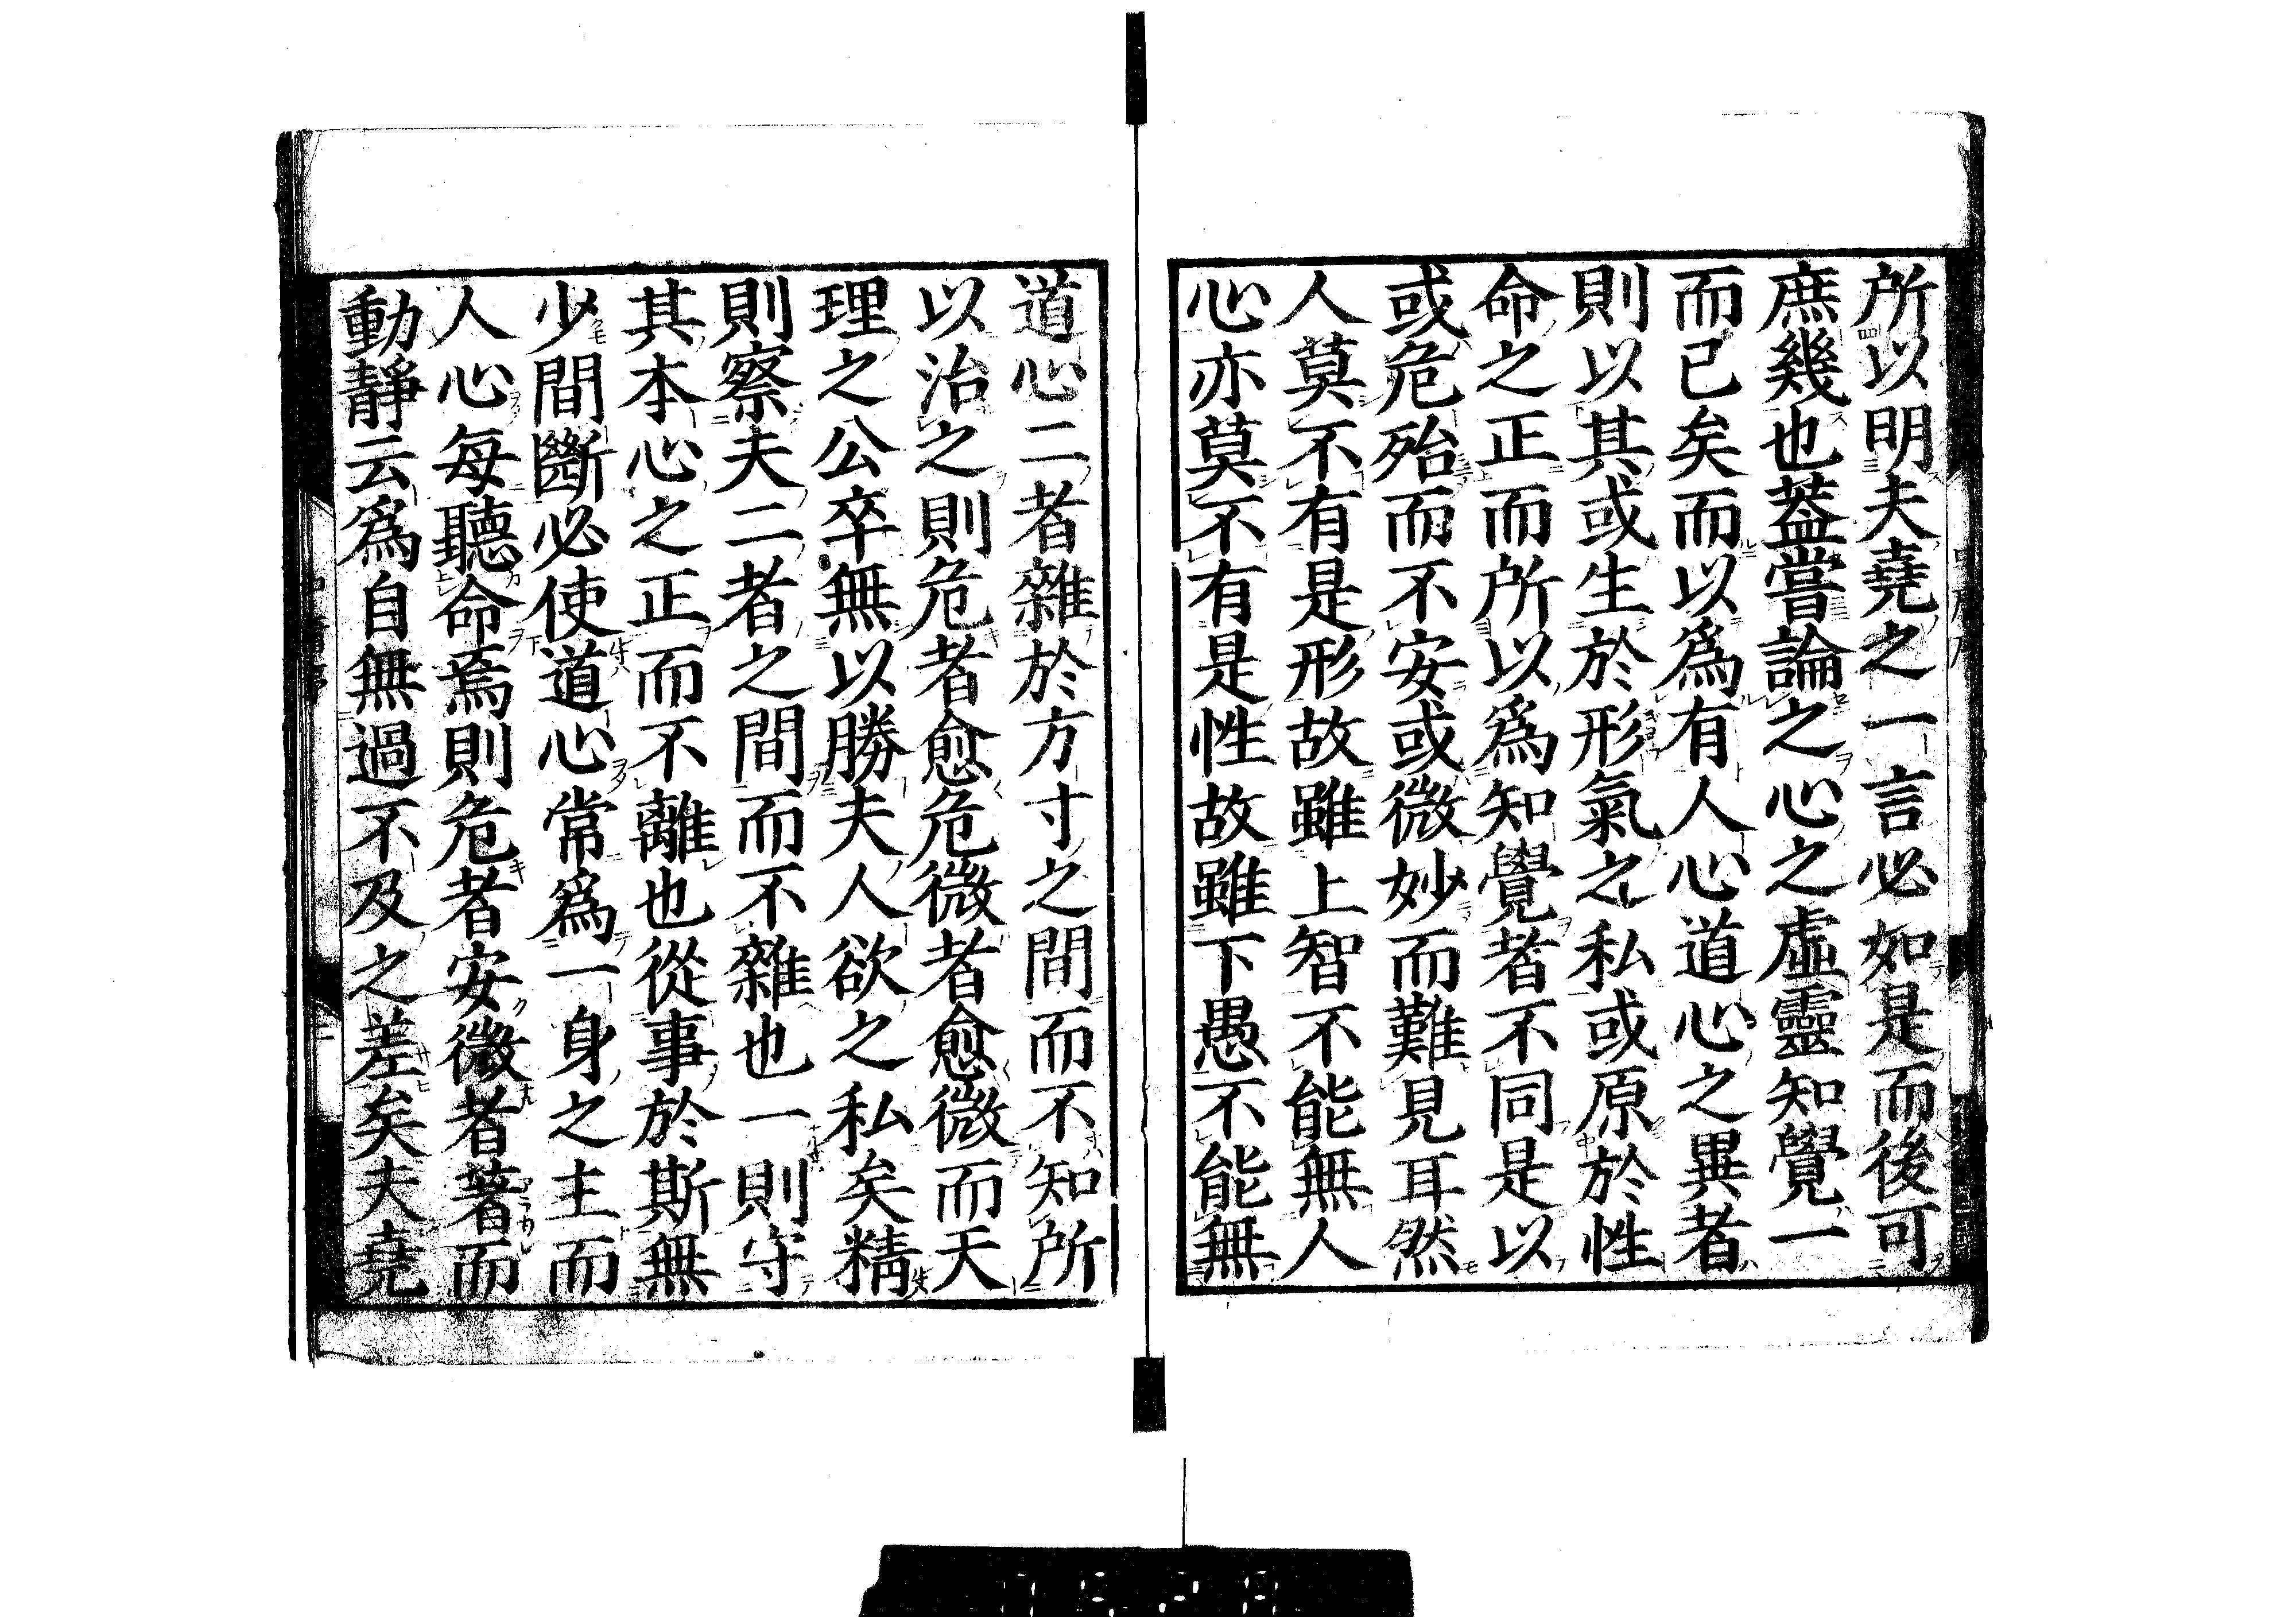 所以明夫堯之一言必如是而後可
庶幾也葢嘗論之心之虛靈知覺一
而已矣而以爲有人心道心之異者
則以其或生於形氣之私或原於性
命之正而所以爲知覺者不同是以
或危殆而不安或微妙而難見耳然
人莫不有是形故雖上智不能無人
心亦莫不有是性故雖下愚不能無
道心二者雜於方寸之間而不知所
以治之則危者愈危微者愈微而天
理之公卒無以勝夫人欲之私矣精
則察夫二者之間而不雜也一則守
其本心之正而不離也從事於斯無
少間斷必使道心常爲一身之主而
人心每聽命焉則危者安微者著而
動靜云爲自無過不及之差矣夫堯